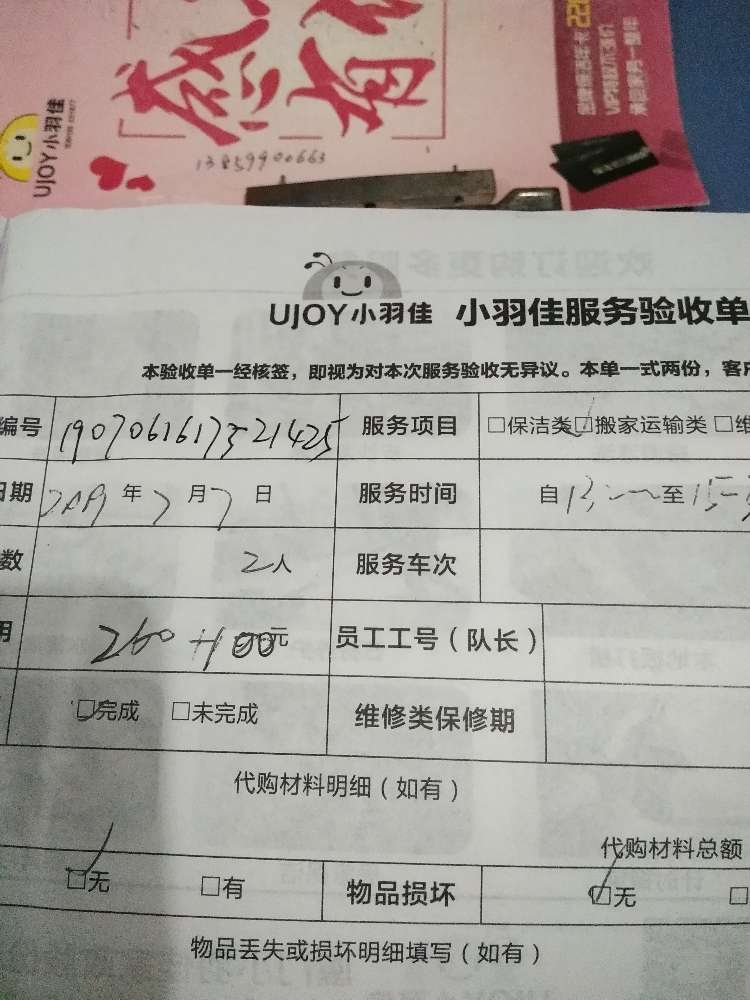 感 有
UJOY小羽佳
13859900663
UJOY小羽佳 小羽佳服务验收单
本验收单一经核签，即视为对本次服务验收无异议。本单一式两份，客户
编号 1907061617521425 服务项目 □保洁类 □搬家运输类 □维
日期 2019 年 7 月 7 日 服务时间 自 至
数 2人 服务车次
用 260+100元 员工工号（队长）
□完成 □未完成 维修类保修期
代购材料明细（如有）
代购材料总额
□无 □有 物品损坏 □无 □
物品丢失或损坏明细填写（如有）